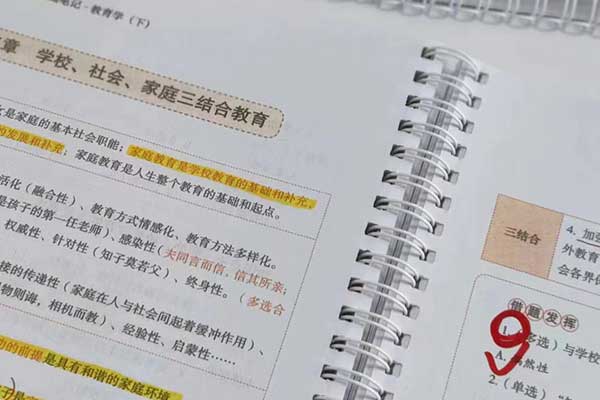 笔记·教育学(下)
章 学校、社会、家庭三结合教育
是家庭的基本社会职能;家庭教育是学校教育的基础和补充,
的发展和补充;家庭教育是人生整个教育的基础和起点。
活化(融合性)、教育方式情感化、教育方法多样化。
是孩子的第一任老师)、感染性(夫同言而信,信其所亲;
权威性、针对性(知子莫若父)、终身性。(多选合
接的传递性(家庭在人与社会间起着缓冲作用)、
物则诲,相机而教)、经验性、启蒙性……
的前提是具有和谐的家庭环境
三结合
4. 加强
外教育
会各界
借题发挥
1. 多选)与学校
A. 然性
2.(单选)
9